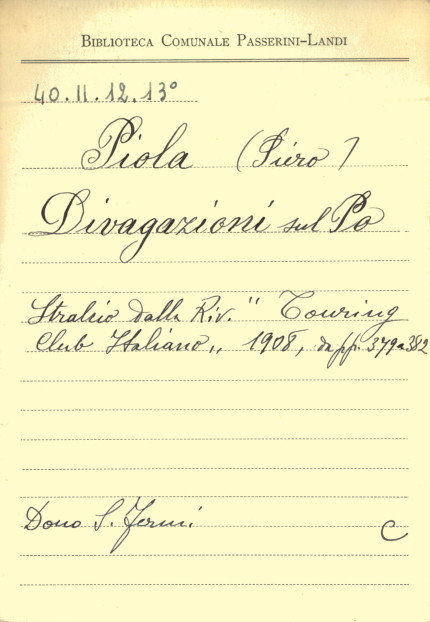 BIBLIOTECA COMUNALE PASSERINI-LANDI
40.II.12.13°
Piola (Piero)
Divagazioni sul Po
Stralcio dalla Riv. " Touring
Club Italiano„ 1908, da pp. 379 a 382
Dono S. Fermi
C